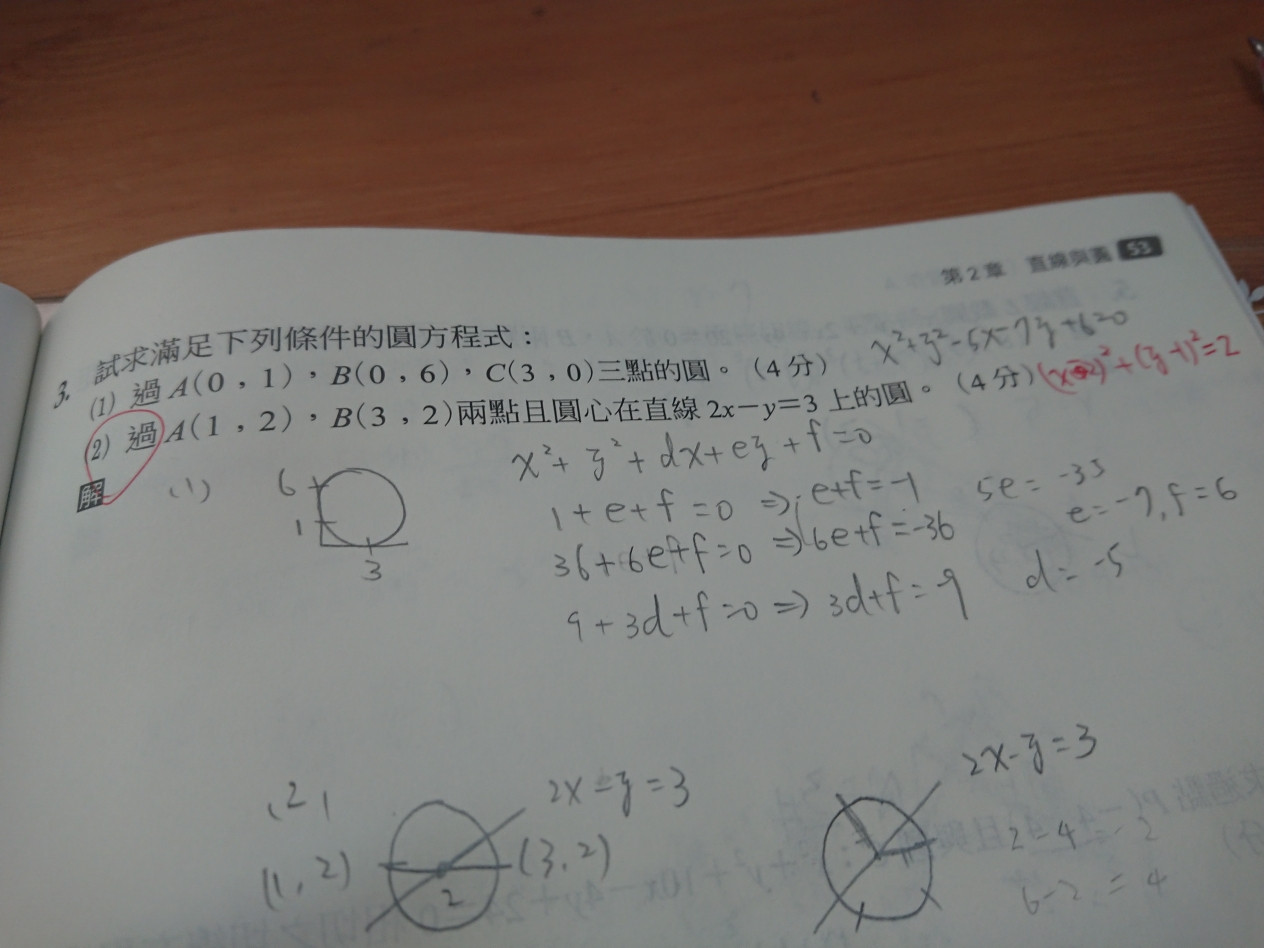 第2章 直線與圓 53
3. 試求滿足下列條件的圓方程式：
(1) 過A(0，1)，B(0，6)，C(3，0)三點的圓。(4分) x²+y²-5x-7y+6=0
(2) 過A(1，2)，B(3，2)兩點且圓心在直線2x-y=3上的圓。(4分) (x-2)²+(y-1)²=2
解
(1)
6
1
3
x²+y²+dx+ey+f=0
1+e+f=0 ⇒ e+f=-1
36+6e+f=0 ⇒ 6e+f=-36
9+3d+f=0 ⇒ 3d+f=-9
5e=-35
e=-7, f=6
d=-5
(2)
2x-y=3
(1,2) (3,2)
2
2x-y=3
6-2=4